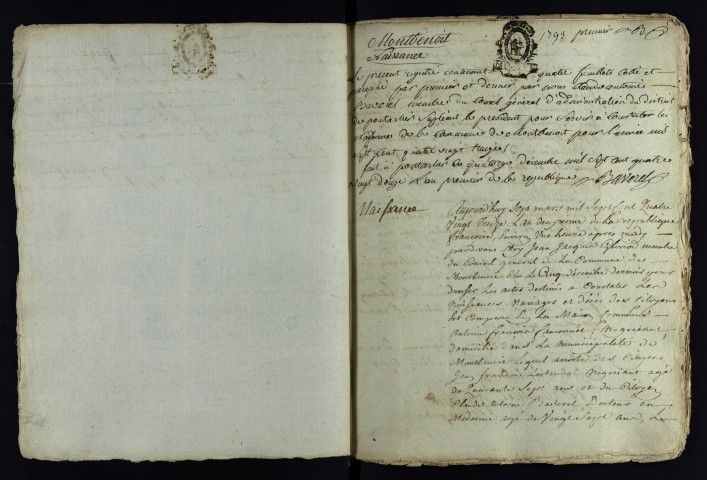 Montbenoit
Naissance
1793 premier
Le present registre contenant quatre feuillets coté et
paraphé par premier et dernier par nous Claude antoine
Baverel membre du Conseil général d'administration du district
de pontarlier supléant le president pour servir à constater les
naissances de la Commune de Montbenoit pour l'année mil
sept cent quatre vingt treize
fait à pontarlier le quatorze décembre mil sept cent quatre
vingt douze L'an premier de la republique Baverel
Naissance
Aujourdhuy sept mars mil sept cent quatre
vingt treize L'an deuxieme de la republique
francoise, une heure après midy
pardevant moy Jean Jacques membre
du Conseil general de la Commune de
Montbenoit élu le cinq décembre dernier pour
dresser les actes destinés a constater les
Naissances Mariages et décés des Citoyens
est comparu en la Maison Commune
antoine francois
domicilié dans la municipalité de
Montbenoit lequel assisté des Citoyens
Jean francois négociant agé
de quarante sept ans et du Citoyen
Claude antoine Baverel Docteur en
Medecine agé de vingt sept ans, la